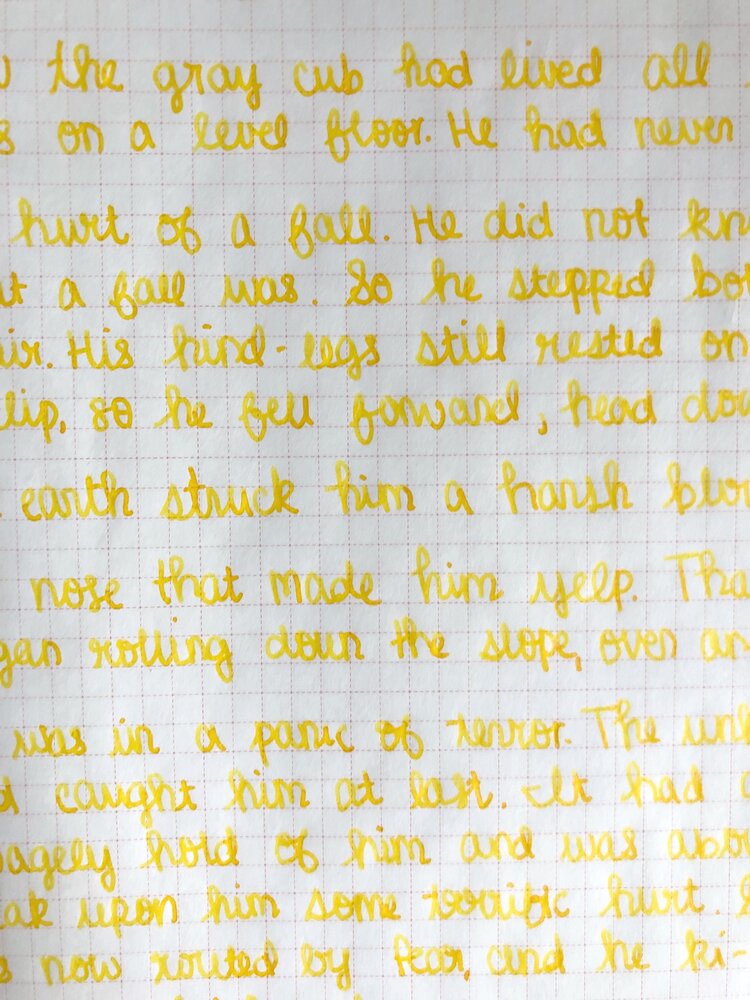 the gray cub had lived all
s on a level floor. He had never
hurt of a fall. He did not kn
at a fall was. So he stepped bol
air. His hind-legs still rested on
lip, so he fell forward, head dow
earth struck him a harsh blow
nose that made him yelp. Tha
gan rolling down the slope, over an
was in a panic of terror. The unk
d caught him at last. It had
vagely hold of him and was abou
eak upon him some terrific hurt.
s now routed by fear, and he ki-